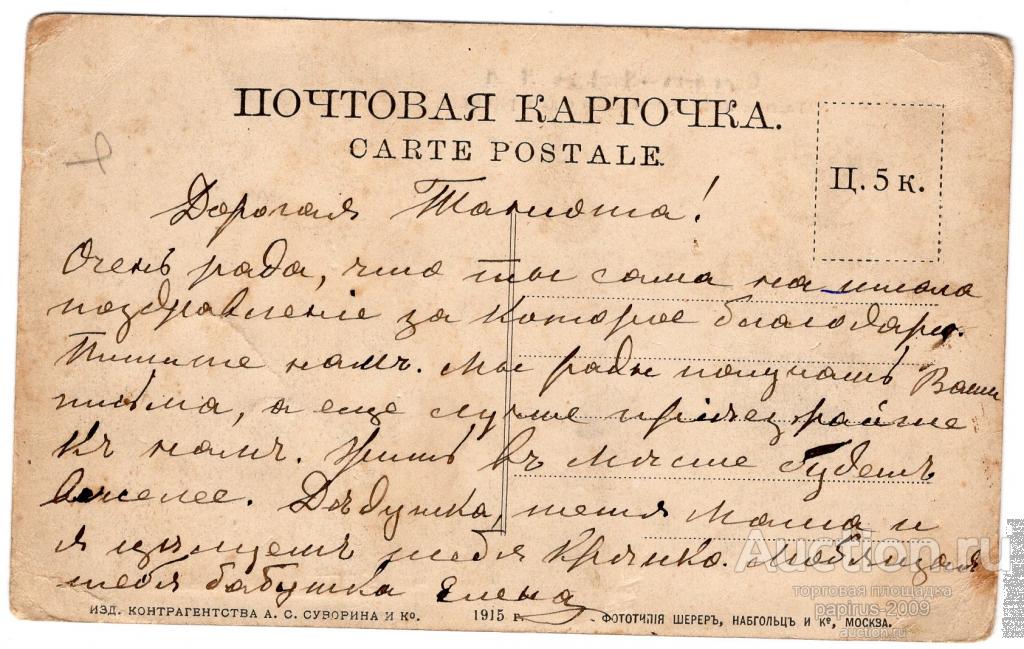 ПОЧТОВАЯ КАРТОЧКА.
CARTE POSTALE.
Ц. 5 к.
Дорогая Танюша!
Очень рада, что ты сама написала
поздравленіе за которое благодарю.
Пишите намъ. Мы рады получать Ваши
письма, а еще лучше пріѣзжайте
къ намъ. Жить вмѣсте будетъ
веселее. Дѣдушка, тетя Маша и
я цѣлуемъ тебя крѣпко. Любящая
тебя бабушка Елена
ИЗД. КОНТРАГЕНТСТВА А. С. СУВОРИНА И Ко. 1915 г. ФОТОТИПІЯ ШЕРЕРЪ, НАБГОЛЬЦЪ И Ко, МОСКВА.
Auction.ru
торговая площадка
papirus-2009
auction.ru